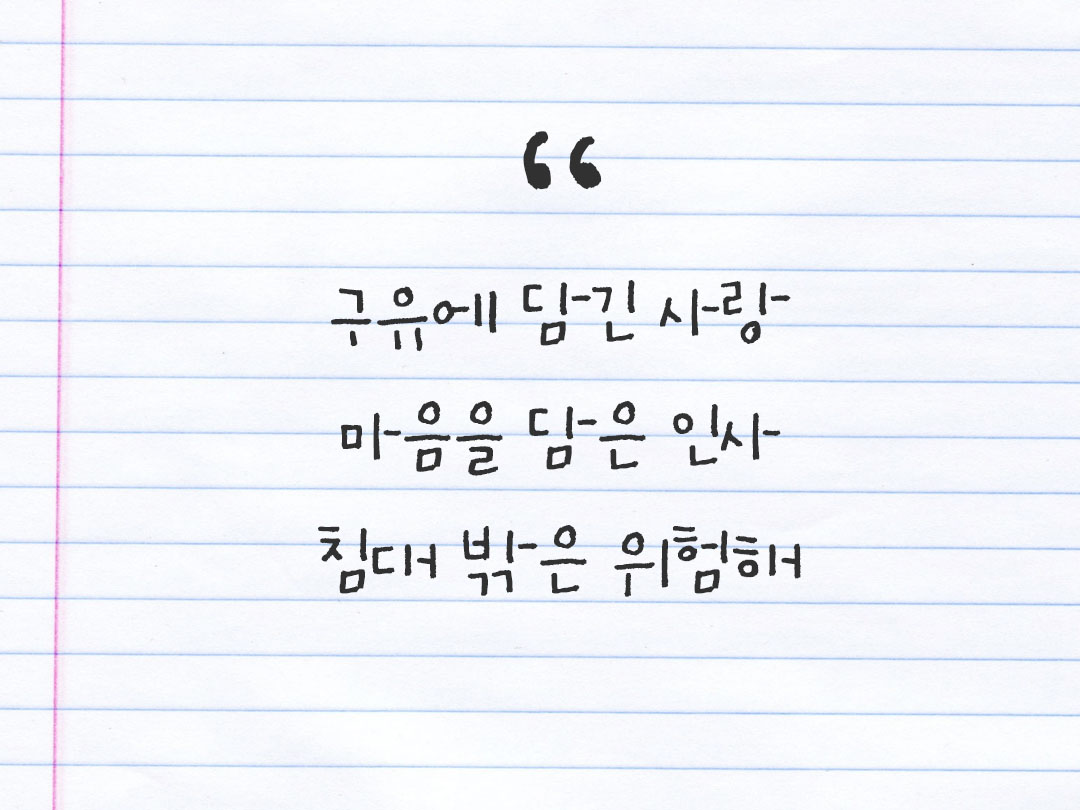 “
구유에 담긴 사랑
마음을 담은 인사
침대 밖은 위험해